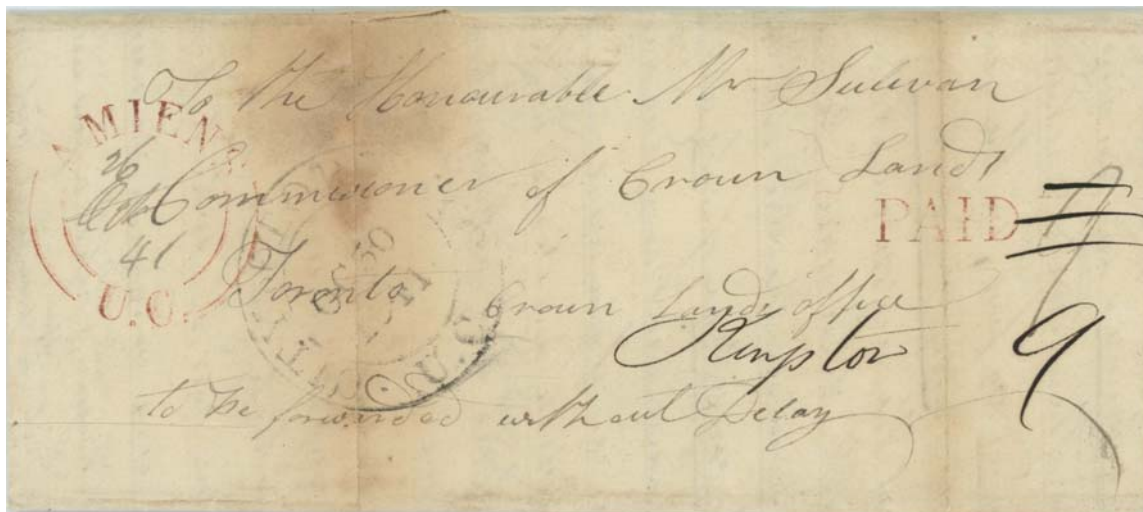 To the Honourable Mr Sulivan
Commissioner of Crown Lands
Toronto
Crown Lands office
Kingston 9
to be forwarded without Delay
AMIENS
26
Oct
41
U.C.
PAID
OC 30
1841
U.C.